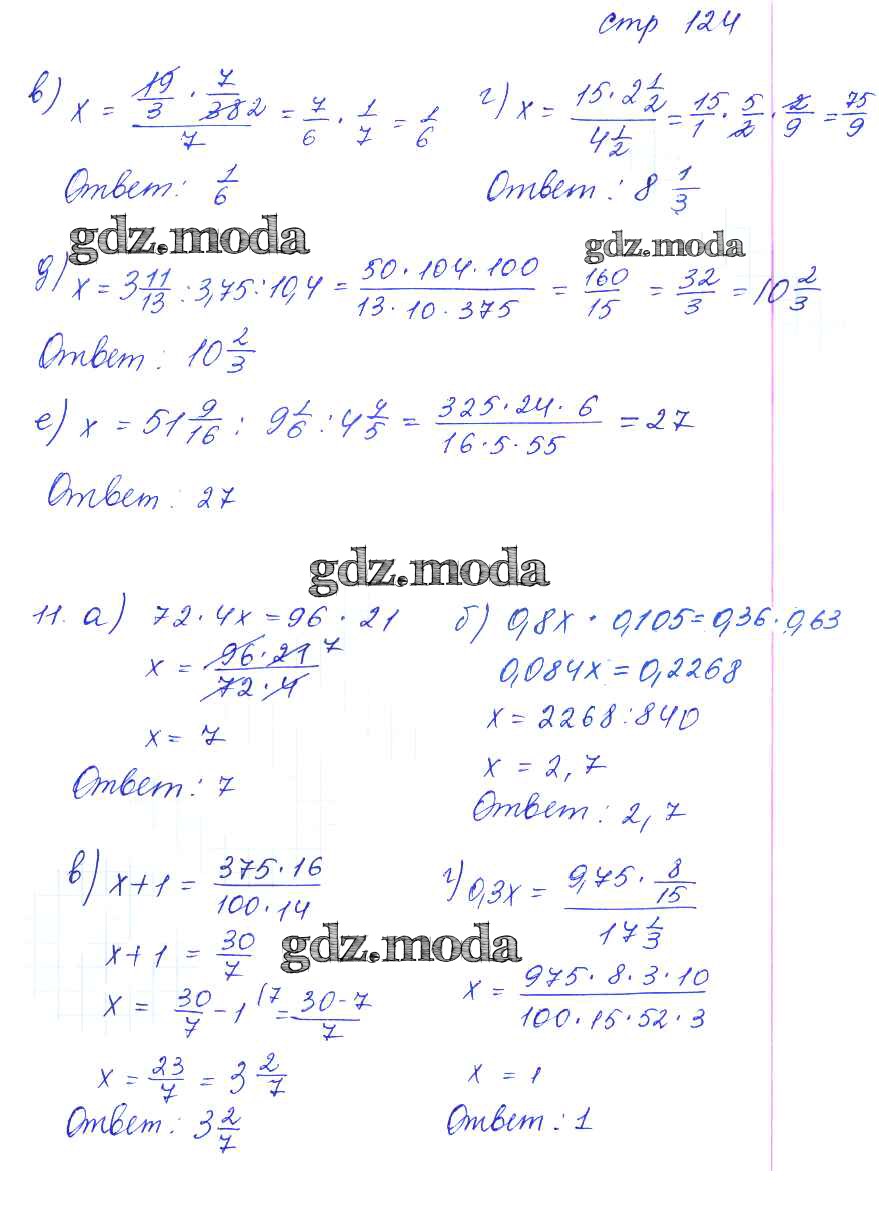 стр 124
в) x = (19/3 · 7/382)/7 = 7/6 · 1/7 = 1/6
г) x = (15 · 2 1/2)/(4 1/2) = 15/1 · 5/2 · 2/9 = 75/9
Ответ: 1/6
Ответ: 8 1/3
gdz.moda
gdz.moda
д) x = 3 11/13 : 3,75 : 10,4 = (50 · 104 · 100)/(13 · 10 · 375) = 160/15 = 32/3 = 10 2/3
Ответ: 10 2/3
е) x = 51 9/16 : 9 1/6 : 4 4/5 = (325 · 24 · 6)/(16 · 5 · 55) = 27
Ответ: 27
gdz.moda
11. а) 72 · 4x = 96 · 21
x = (96 · 21 7)/(72 · 4)
x = 7
Ответ: 7
б) 0,8x · 0,105 = 0,36 · 0,63
0,084x = 0,2268
x = 2268 : 840
x = 2,7
Ответ: 2,7
в) x + 1 = (375 · 16)/(100 · 14)
x + 1 = 30/7
gdz.moda
x = 30/7 - 1 (7 = (30 - 7)/7
x = 23/7 = 3 2/7
Ответ: 3 2/7
г) 0,3x = (9,75 · 8/15)/(17 1/3)
x = (975 · 8 · 3 · 10)/(100 · 15 · 52 · 3)
x = 1
Ответ: 1